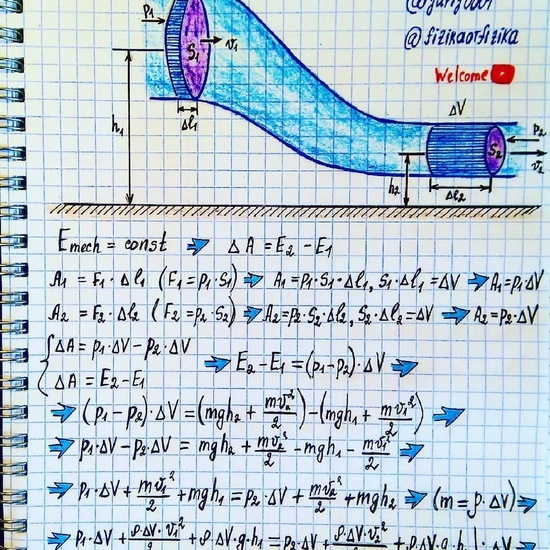 @fizikaotfizika
Welcome
p₁
S₁
v₁
Δl₁
h₁
ΔV
p₂
S₂
v₂
h₂
Δl₂
Eмеch = const ⇒ ΔA = E₂ - E₁
A₁ = F₁ · Δl₁ (F₁ = p₁ · S₁) ⇒ A₁ = p₁ · S₁ · Δl₁, S₁ · Δl₁ = ΔV ⇒ A₁ = p₁ · ΔV
A₂ = F₂ · Δl₂ (F₂ = p₂ · S₂) ⇒ A₂ = p₂ · S₂ · Δl₂, S₂ · Δl₂ = ΔV ⇒ A₂ = p₂ · ΔV
{ ΔA = p₁ · ΔV - p₂ · ΔV
ΔA = E₂ - E₁ ⇒ E₂ - E₁ = (p₁ - p₂) · ΔV ⇒
⇒ (p₁ - p₂) · ΔV = (mgh₂ + mv₂²/2) - (mgh₁ + mv₁²/2) ⇒
⇒ p₁ · ΔV - p₂ · ΔV = mgh₂ + mv₂²/2 - mgh₁ - mv₁²/2 ⇒
⇒ p₁ · ΔV + mv₁²/2 + mgh₁ = p₂ · ΔV + mv₂²/2 + mgh₂ ⇒ (m = ρ · ΔV) ⇒
⇒ p₁ · ΔV + ρ · ΔV · v₁²/2 + ρ · ΔV · g · h₁ = p₂ · ΔV + ρ · ΔV · v₂²/2 + ρ · ΔV · g · h